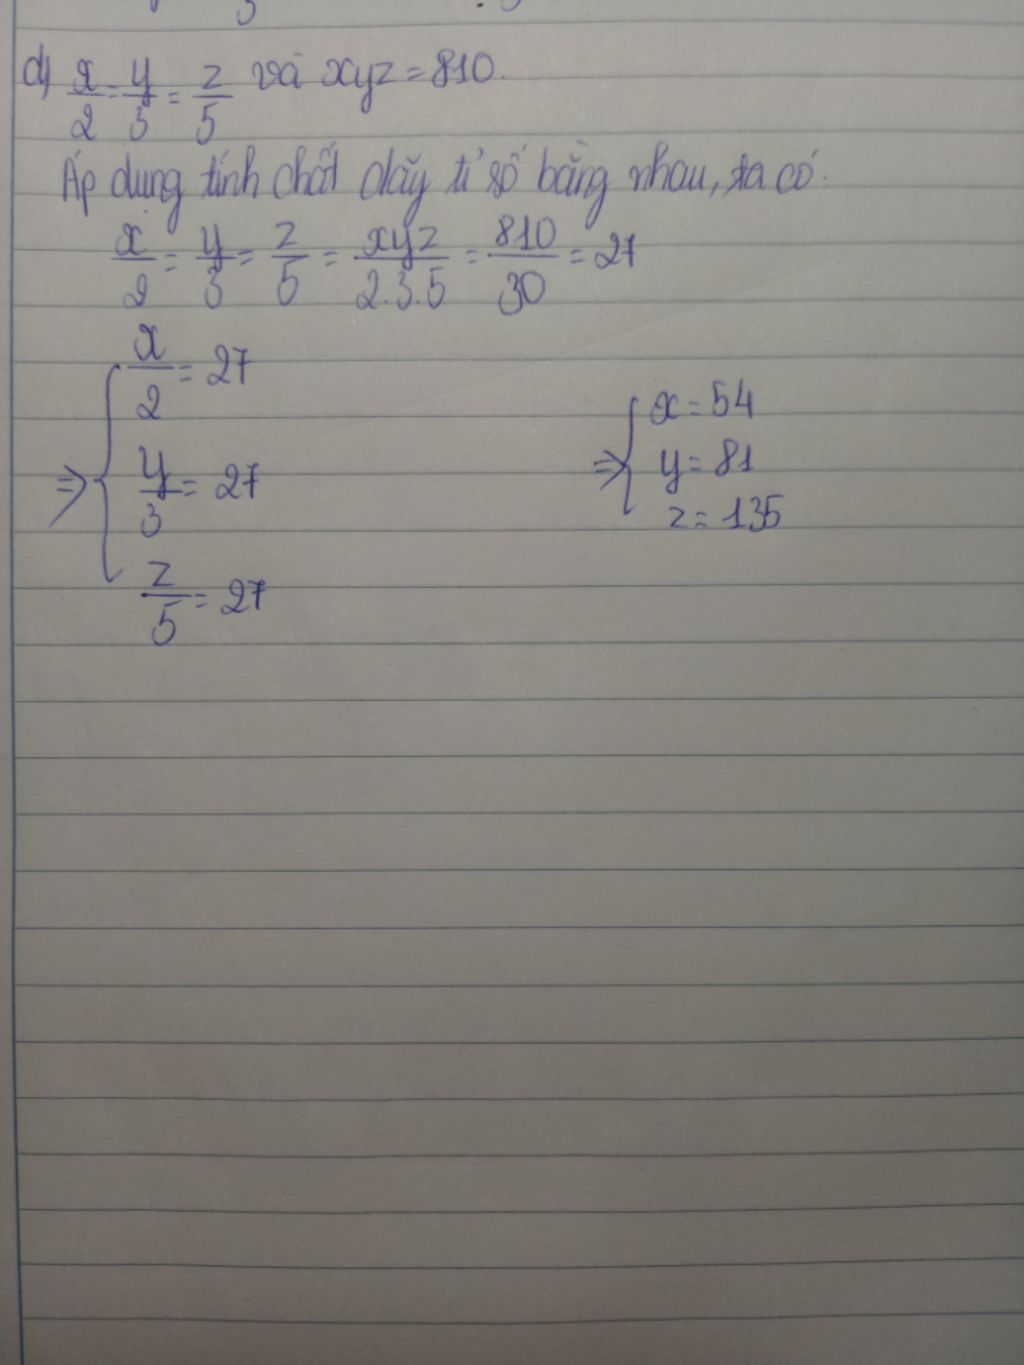 d) x/2 = y/3 = z/5 và xyz = 810.
Áp dụng tính chất dãy tỉ số bằng nhau, ta có:
x/2 = y/3 = z/5 = xyz/2.3.5 = 810/30 = 27
⇒ { x/2 = 27
y/3 = 27
z/5 = 27
⇒ { x = 54
y = 81
z = 135